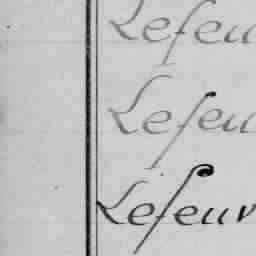 Lefeu
Lefeu
Lefeuv